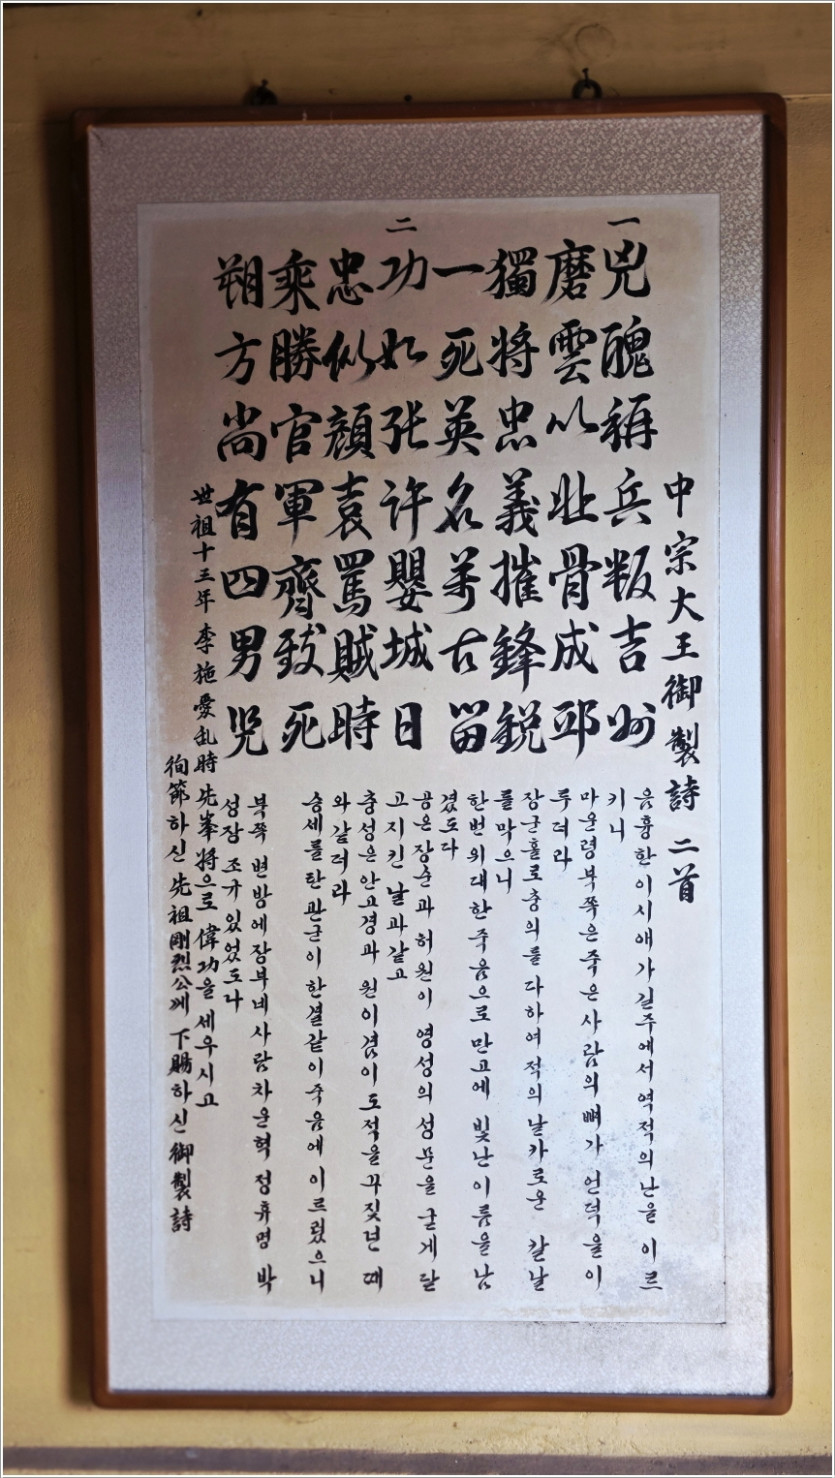 中宗大王御製詩 二首
一
兇醜稱兵叛吉州
磨雲以北骨成邱
獨將忠義摧鋒銳
一死英名萬古留
二
功如張许嬰城日
忠似顔袁罵賊時
乘勝官軍齊致死
朔方尚有四男兒
음흉한 이시애가 길주에서 역적의 난을 이르
키니
마운령 북쪽은 죽은 사람의 뼈가 언덕을 이
루더라
장군 홀로 충의를 다하여 적의 날카로운 칼날
를 막으니
한번 위대한 죽음으로 만고에 빛난 이름을 남
겼도다
공은 장순과 허원이 영성의 성문을 굳게 닫
고 지킨 날과 같고
충성은 안고경과 원이겸이 도적을 꾸짖던 때
와 같더라
승세를 탄 관군이 한결같이 죽음에 이르렀으니
북쪽 변방에 장부네사람 차운혁 정휴명 박
성장 조규 있었도다
世祖十三年 李施愛乱時 先峯將으로 偉功을 세우시고
徇節하신 先祖 剛烈公께 下賜하신 御製詩